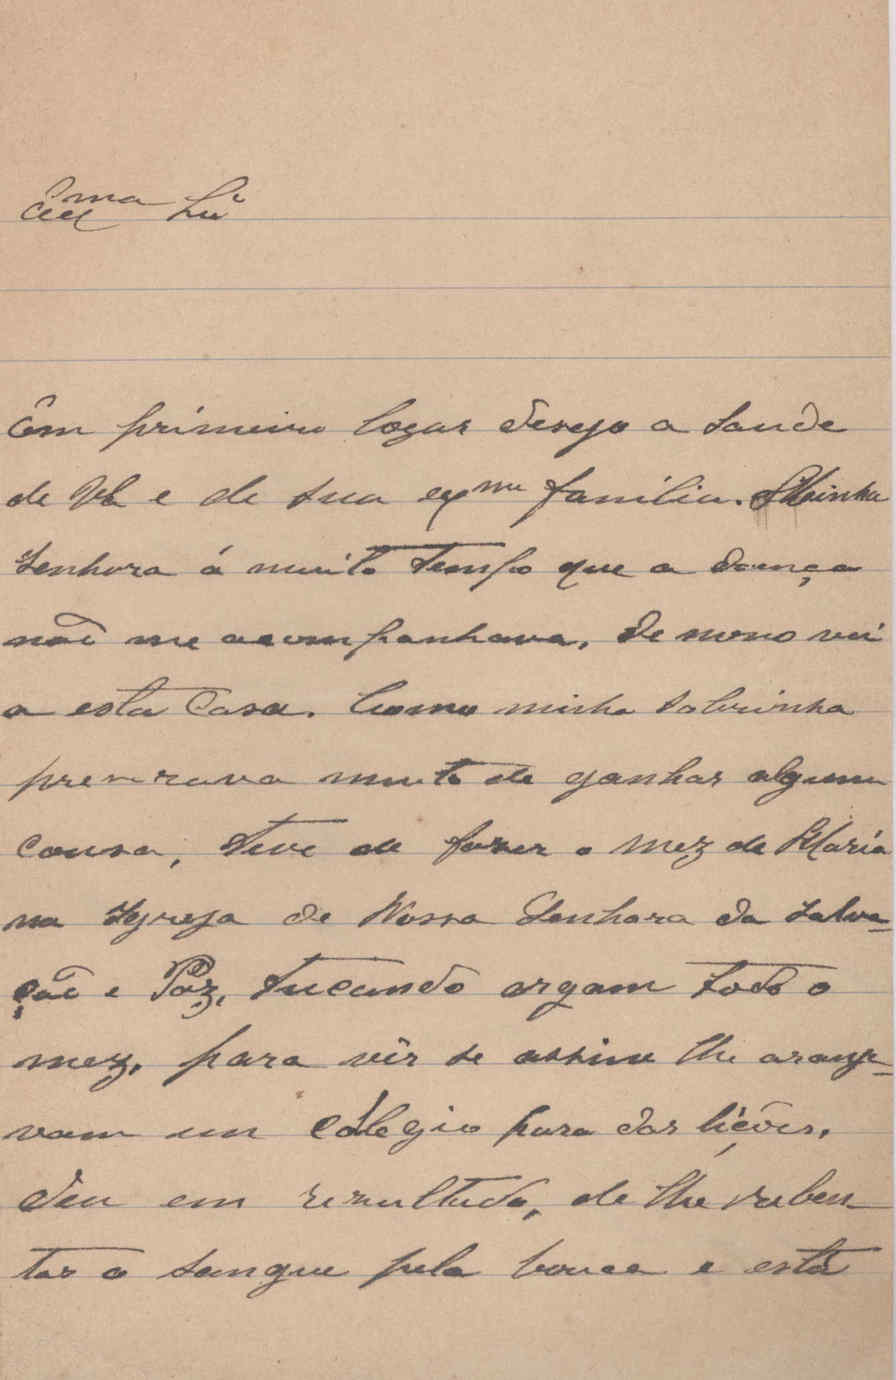 Ex.ma Snr.a
Em primeiro logar desejo a saude
de Vª e de sua exma familia. Minha
Senhora á muito tempo que a doença
não me acompanhava, de novo vei
a esta Casa. Como minha sobrinha
percurava muito de ganhar alguma
cousa, teve de fazer o mez de Maria
na Igreja de Nossa Senhora da Salva-
ção e Paz, tucando orgam todo o
mez, para vêr se assim lhe aranja-
vam um colegio para dar lições,
deu em rezultado, de lhe reben
tar o sangue pela bouca e está